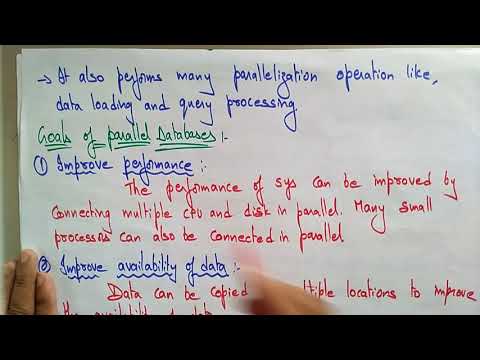 → It also performs many parallelization operation like,
data loading and query processing.
Goals of parallel Databases :-
① Improve performance :-
The performance of sys can be improved by
Connecting multiple cpu and disk in parallel. Many small
processors can also be connected in parallel
② Improve availability of data :-
Data can be copied locations to improve
the availability of data